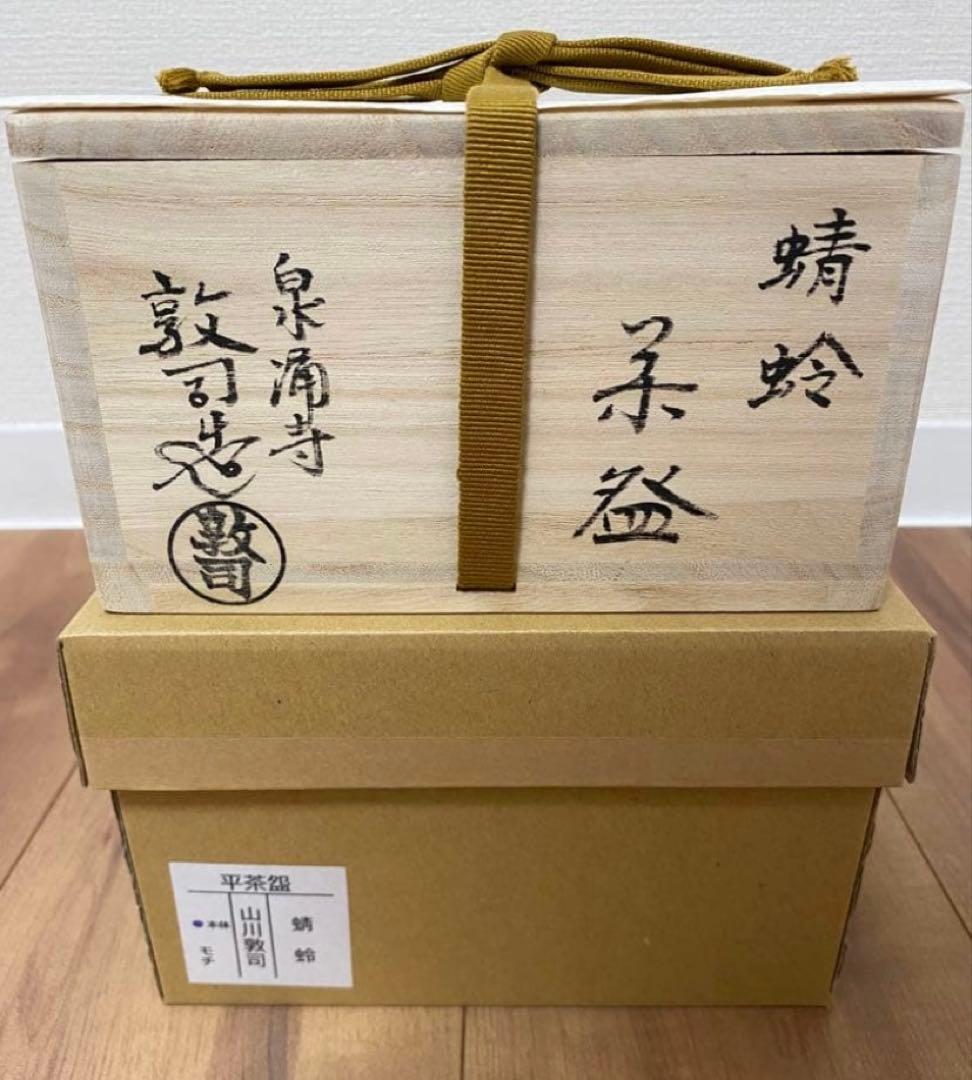 蜻蛉
茶盌
泉涌寺
敦司造
敦司
平茶盌
蜻蛉
山川敦司
本体
モチ